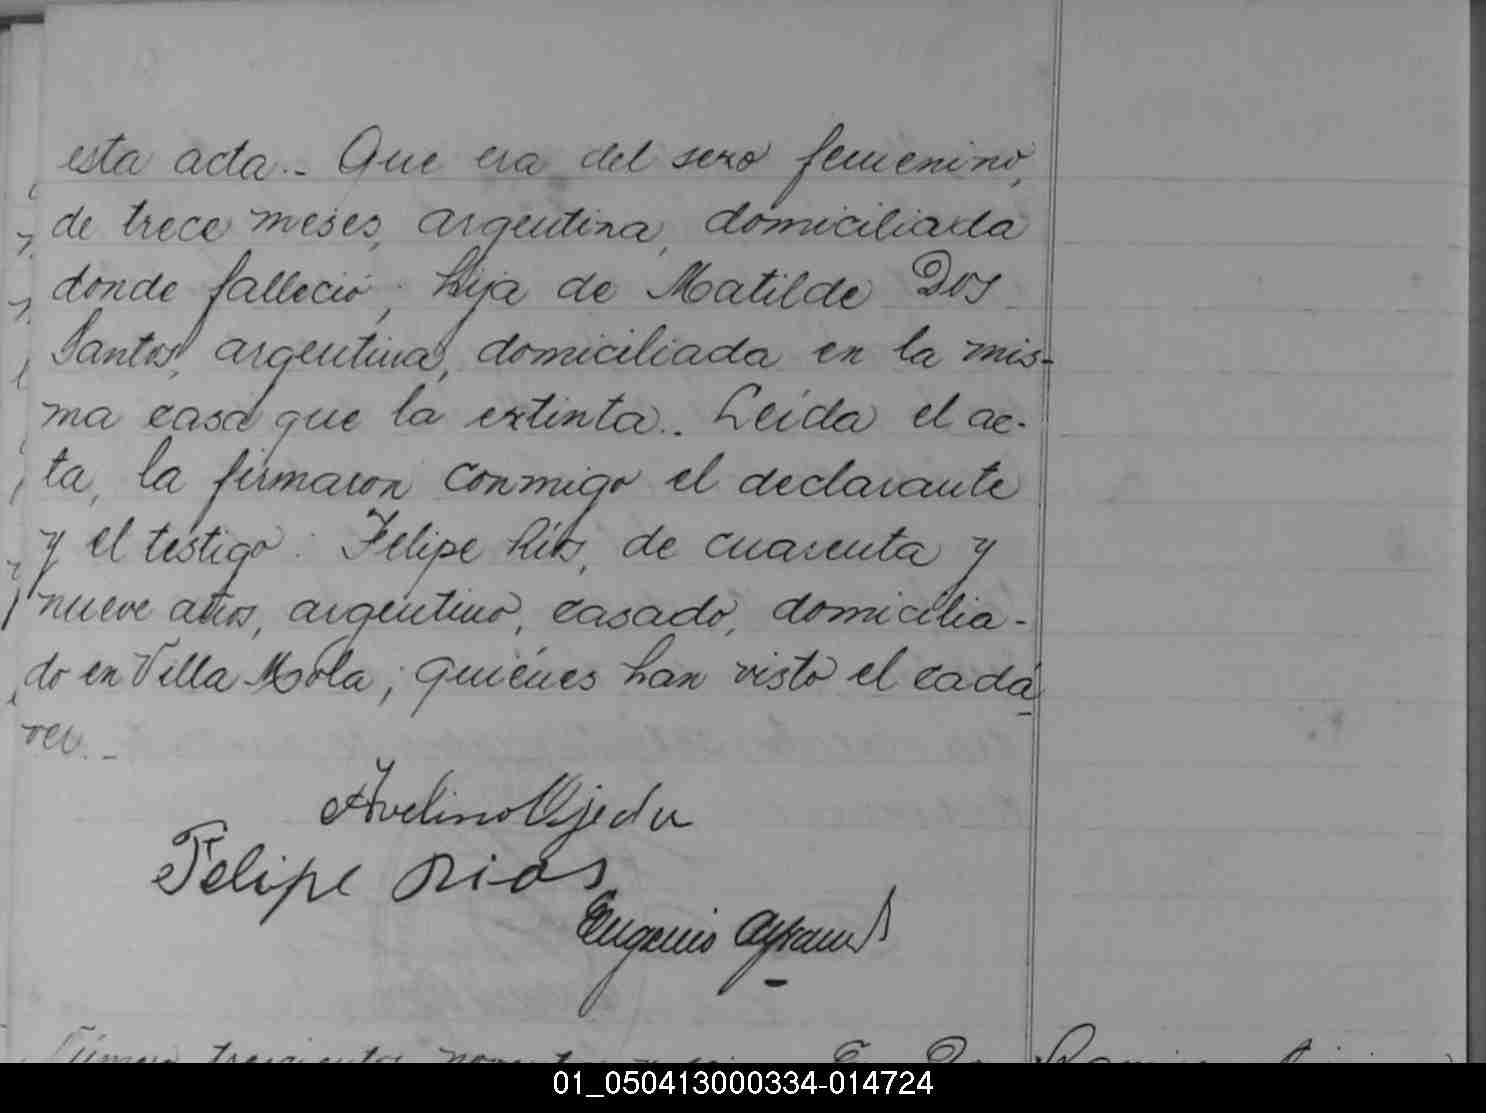 esta acta.- Que era del sexo femenino,
de trece meses, argentina, domiciliada
donde falleció, hija de Matilde Dos
Santos, argentina, domiciliada en la mis-
ma casa que la extinta.. Leída el ac-
ta, la firmaron conmigo el declarante
y el testigo: Felipe Ríos, de cuarenta y
nueve años, argentino, casado, domicilia-
do en Villa Mola; quiénes han visto el cadá
ver.-
Avelino Ojeda
Felipe Rios
Eugenio
Número trescientos
01_050413000334-014724